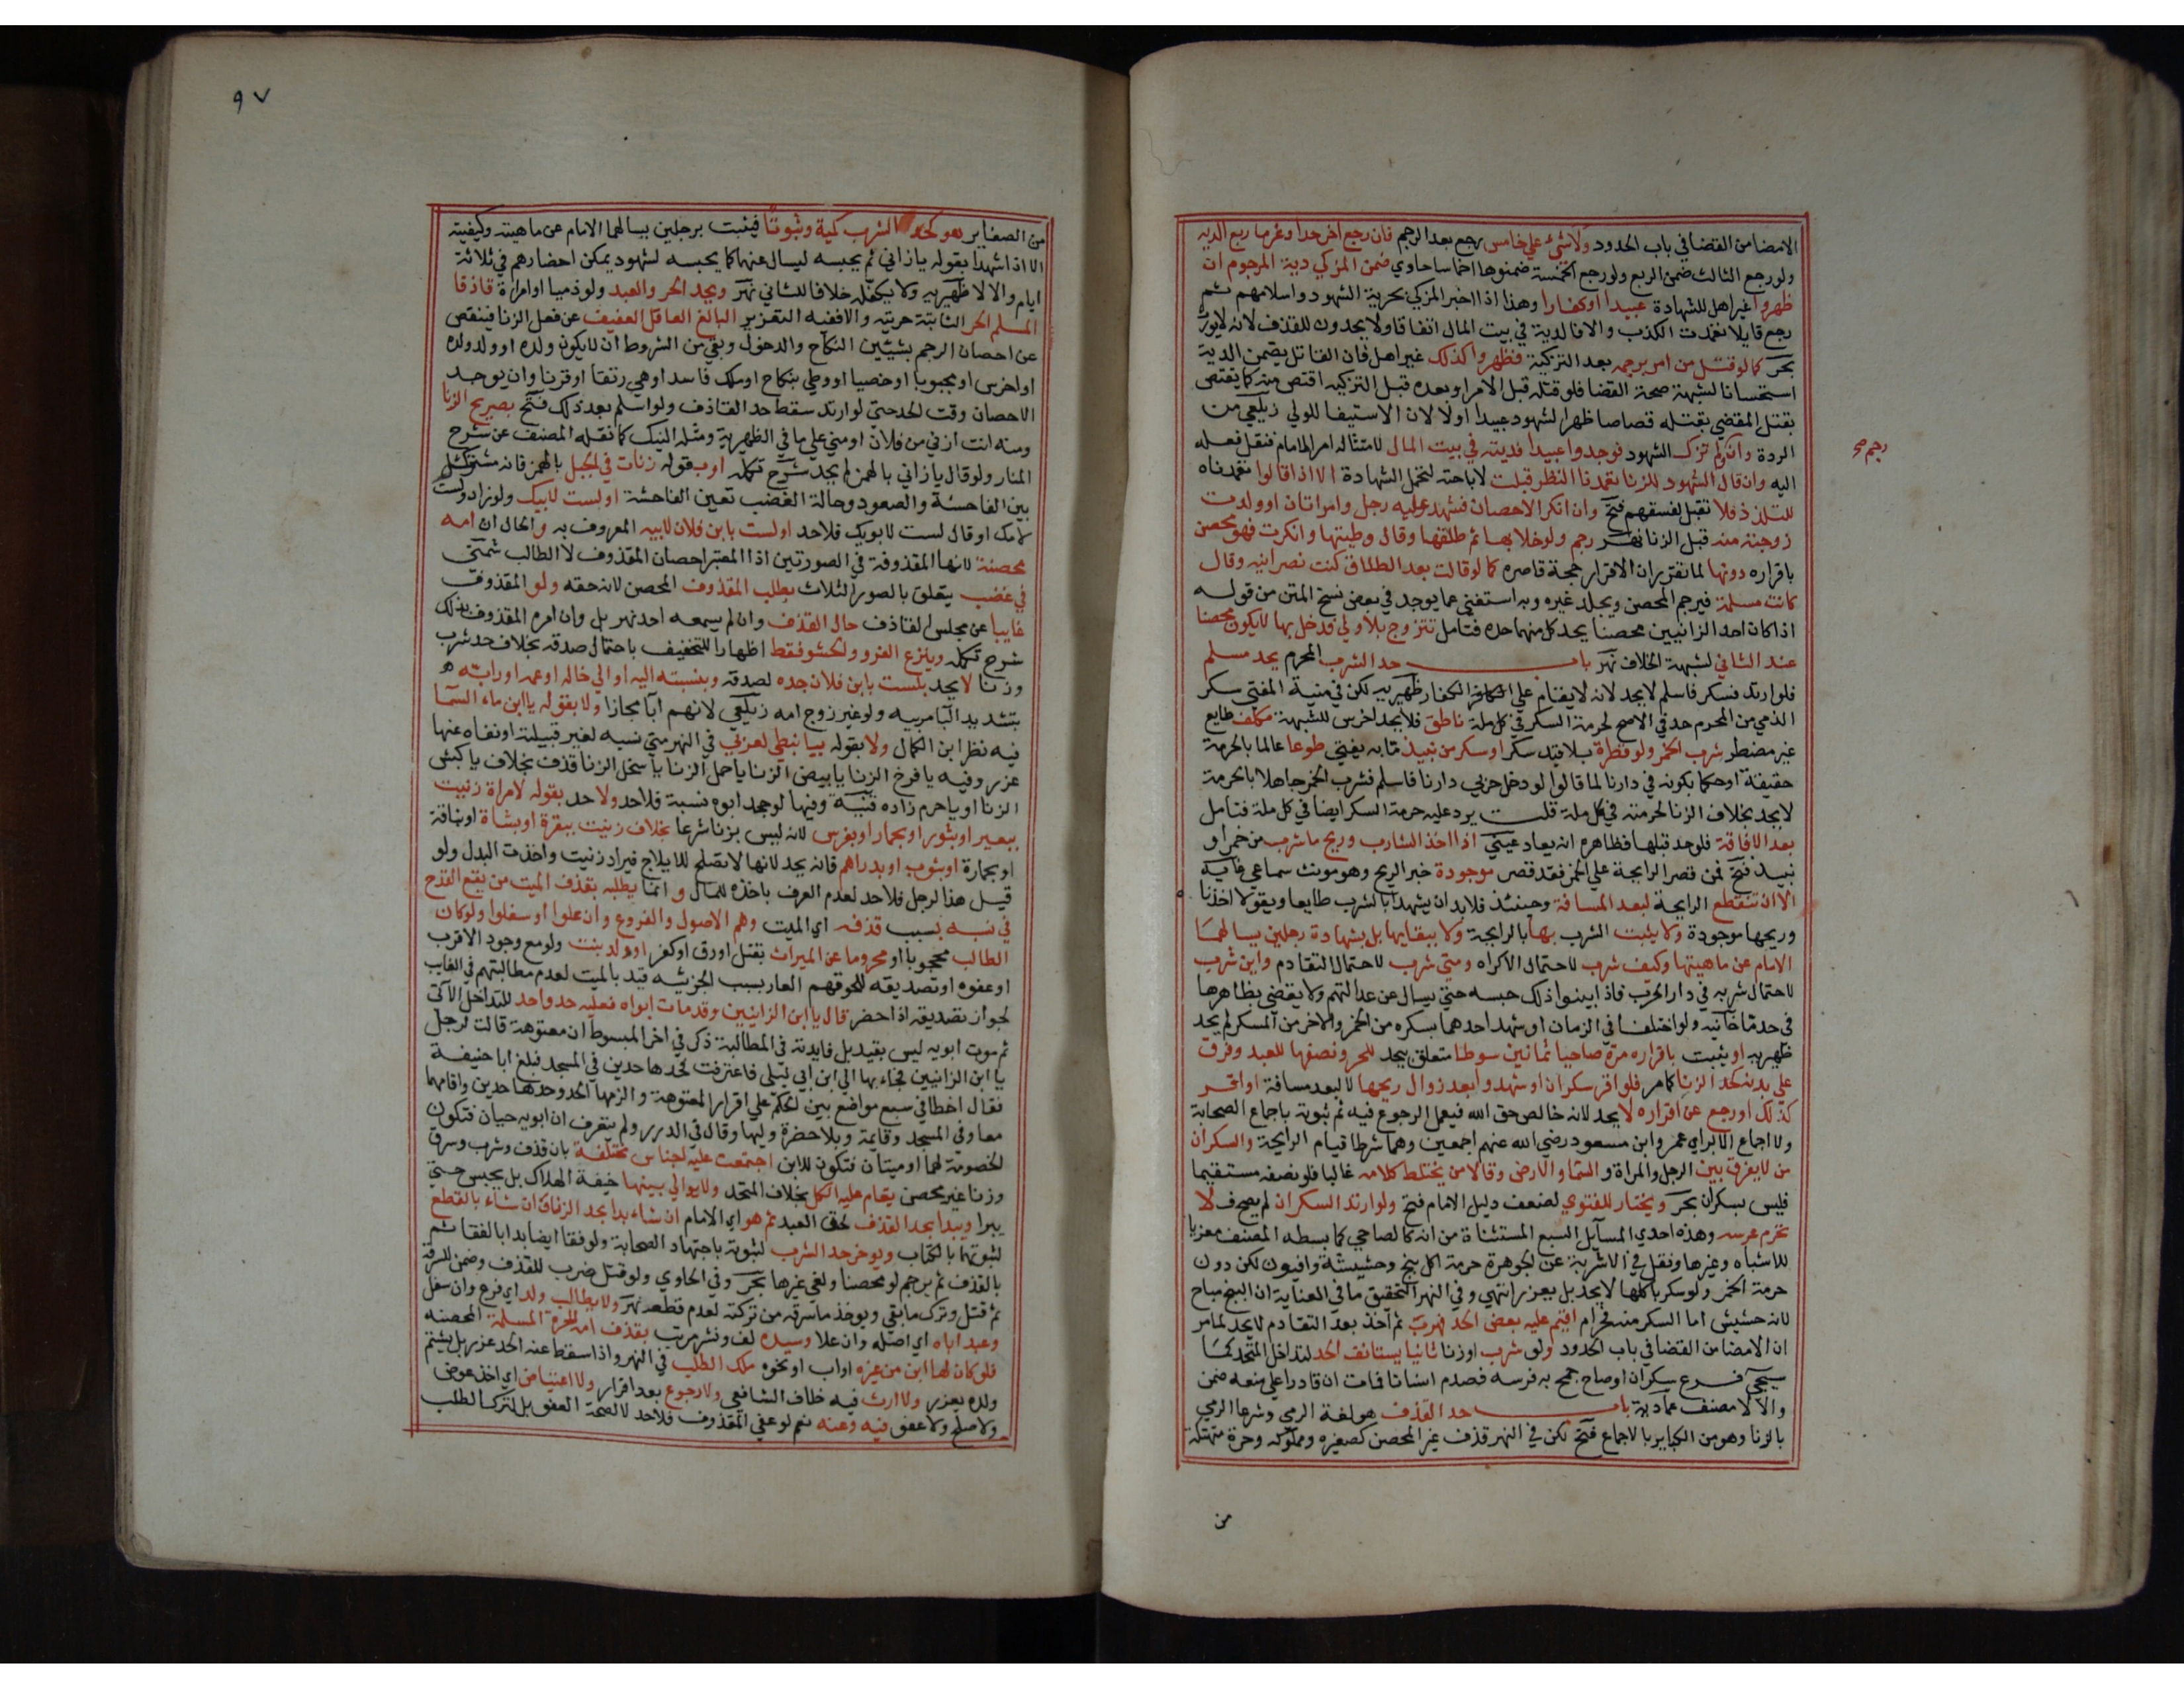 الامضا من القضا في باب الحدود ولا شيئ علي خامس رجع بعد الرجم فان رجع اخر حدا وغرما ربع الديه
ولو رجع الثالث ضمن الربع ولو رجع الخمسة ضمنوها اخماسا حاوي ضمن المزكي دية المرجوم ان
ظهروا غير اهل للشهادة عبيدا او كفارا وهذا اذا اخبر المزكي بحرية الشهود واسلامهم ثم
رجع قايلا تعمدت الكذب والا فالدية في بيت المال اتفاقا ولا يحدون للقذف لانه لا يورث
بحر كما لو قتل من امر برجمه بعد التزكية فظهروا كذلك غير اهل فان القاتل يضمن الدية
استحسانا لشبهة صحة القضا فلو قتله قبل الامر او بعده قبل التزكيه اقتص منه كما يقتص
بقتل المقضي بقتله قصاصا ظهر الشهود عبيدا اولا لان الاستيفا للولي زيلعي من
الردة وان لم تزك الشهود فوجدوا عبيدا فديته في بيت المال لامتثاله امر الامام فنقل فعله
رجم صح
اليه وان قال الشهود للزنا تعمدنا النظر قبلت لاباحته لتحمل الشهادة الا اذا قالوا تعمدناه
للتلذذ فلا تقبل لفسقهم فتح وان انكر الاحصان فشهد عليه رجل وامراتان او ولدت
زوجته منه قبل الزنا نهر رجم ولو خلا بها ثم طلقها وقال وطيتها وانكرت فهو محصن
باقراره دونها لما تقرر ان الاقرار حجة قاصره كما لو قالت بعد الطلاق كنت نصرانيه وقال
كانت مسلمة فيرجم المحصن ويجلد غيره وبه استغني عما يوجد في بعض نسخ المتن من قوله
اذا كان احد الزانيين محصنا يحد كل منهما حده فتامل تزوج بلا ولي فدخل بها لا يكون محصنا
عند الثاني لشبهة الخلاف نهر باب حد الشرب المحرم يحد مسلم
فلو ارتد فسكر فاسلم لا يحد لانه لا يقام علي الكفار ظهيريه لكن في منية المفتي سكر
الذمي من المحرم حد في الاصح لحرمة السكر في كل ملة ناطق فلا يحد اخرس للشبهة مكلف طايع
غير مضطر شرب الخمر ولو قطرة بلا قيد سكر او سكر من نبيذ ما به يفتي طوعا عالما بالحرمة
حقيقة او حكما بكونه في دارنا لما قالوا لو دخل حربي دارنا فاسلم فشرب الخمر جاهلا بالحرمة
لا يحد بخلاف الزنا لحرمته في كل ملة قلت يرد عليه حرمة السكر ايضا في كل ملة فتامل
بعد الافاقة فلو حد قبلها فظاهره انه يعاد عيني اذا اخذ الشارب وريح ما شرب من خمر او
نبيذ فتح فمن قصر الرايحة علي الخمر فقد قصر موجودة خبر الريح وهو مونث سماعي غاية
الا ان تنقطع الرايحة لبعد المسافة وحينئذ فلا بد ان يشهدا بالشرب طايعا ويقولا اخذنا
وريحها موجودة ولا يثبت الشرب بها بالرايحة ولا بتقايها بل بشهادة رجلين يسالهما
الامام عن ماهيتها وكيف شرب لاحتمال الاكراه ومتي شرب لاحتمال التقادم واين شرب
لاحتمال شربه في دار الحرب فاذا بينوا ذلك حبسه حتي يسال عن عدالتهم ولا يقضي بظاهرها
في حد ما خانيه ولو اختلفا في الزمان او شهد احدهما بسكره من الخمر والاخر من المسكر لم يحد
ظهيريه او يثبت باقراره مرة صاحيا ثمانين سوطا متعلق بيحد للحر ونصفها للعبد وفرق
علي بدنه كحد الزنا كما مر فلو اقر سكران او شهدوا بعد زوال ريحها لا لبعد مسافة او اقر
كذلك او رجع عن اقراره لا يحد لانه خالص حق الله فيعمل الرجوع فيه ثم ثبوته باجماع الصحابة
ولا اجماع الا براي عمر وابن مسعود رضي الله عنهم اجمعين وهما شرطا قيام الرايحة والسكران
من لا يفرق بين الرجل والمراة والسما والارض وقالا من يختلط كلامه غالبا فلو نصفه مستقيما
فليس بسكران بحر ويختار للفتوي لضعف دليل الامام فتح ولو ارتد السكران لم يصح فلا
تحرم عرسه وهذه احدي المسايل السبع المستثناة من انه كالصاحي كما بسطه المصنف معزيا
للاشباه وغيرها ونقل في الاشربة عن الجوهرة حرمة اكل بنج وحشيشة وافيون لكن دون
حرمة الخمر ولو سكر باكلها لا يحد بل يعزر انتهي وفي النهر التحقيق ما في العناية ان البنج مباح
لانه حشيش اما السكر منه فحرام اقيم عليه بعض الحد فهرب ثم اخذ بعد التقادم لا يحد لما مر
ان الامضا من القضا في باب الحدود ولو شرب او زنا ثانيا يستانف الحد لتداخل المتحد كما
سيجي فرع سكران او صاح جمح به فرسه فصدم انسانا فمات ان قادرا علي منعه ضمن
والا لا مصنف عمادية باب حد القذف هو لغة الرمي وشرعا الرمي
بالزنا وهو من الكباير بالاجماع فتح لكن في النهر قذف غير المحصن كصغيره ومملوكه وحرة متهتكة
من
٩٧
من الصغاير هو كحد الشرب كمية وثبوتا فيثبت برجلين يسالهما الامام عن ماهيته وكيفيته
الا اذا شهدا بقوله يا زاني ثم يحبسه ليسال عنهما كما يحبسه لشهود يمكن احضارهم في ثلاثة
ايام والا لا ظهيريه ولا يكفله خلافا للثاني نهر ويحد الحر والعبد ولو ذميا او امراة قاذفا
المسلم الحر الثابتة حريته والا ففيه التعزير البالغ العاقل العفيف عن فعل الزنا فينقص
عن احصان الرجم بشيئين النكاح والدخول وبقي من الشروط ان لا يكون ولده او ولد ولده
او اخرس او مجبوبا او خصيا او وطي بنكاح او ملك فاسد او هي رتقا او قرنا وان يوجد
الاحصان وقت الحد حتي لو ارتد سقط حد القاذف ولو اسلم بعد ذلك فتح بصريح الزنا
ومنه انت ازني من فلان او مني علي ما في الظهيرية ومثله النيك كما نقله المصنف عن شرح
المنار ولو قال يا زاني بالهمز لم يحد شرح تكمله او بقوله زنات في الجبل بالهمز فانه مشترك
بين الفاحشة والصعود وحالة الغضب تعين الفاحشة او لست لابيك ولو زاد ولست
لامك او قال لست لابويك فلا حد او لست بابن فلان لابيه المعروف به والحال ان امه
محصنة لانها المقذوفة في الصورتين اذ المعتبر احصان المقذوف لا الطالب شمني
في غضب يتعلق بالصور الثلاث بطلب المقذوف المحصن لانه حقه ولو المقذوف
غايبا عن مجلس القاذف حال القذف وان لم يسمعه احد نهر بل وان امره المقذوف بذلك
شرح تكمله وينزع الفرو والحشو فقط اظهارا للتخفيف باحتمال صدقه بخلاف حد شرب
وزنا لا يحد بلست بابن فلان جده لصدقه وبنسبته اليه او الي خاله او عمه او رابه
بتشديد البا مربيه ولو غير زوج امه زيلعي لانهم ابا مجازا ولا بقوله يا ابن ماء السما
فيه نظر ابن الكمال ولا بقوله يا نبطي لعربي في النهر متي نسبه لغير قبيلته او نفاه عنها
عزر وفيه يا فرخ الزنا يا بيض الزنا يا حمل الزنا يا سخل الزنا قذف بخلاف يا كبش
الزنا او يا حرام زاده قنية وفيها لو جحد ابوه نسبه فلا حد ولا حد بقوله لامراة زنيت
ببعير او بثور او بحمار او بفرس لانه ليس بزنا شرعا بخلاف زنيت ببقرة او بشاة او بناقة
او بحمارة او بثوب او بدراهم فانه يحد لانها لا تصلح للايلاج فيراد زنيت واخذت البدل ولو
قيل هذا لرجل فلا حد لعدم العرف باخذه للمال وانما يطلبه بقذف الميت من يقع القدح
في نسبه بسبب قذفه اي الميت وهم الاصول والفروع وان علوا او سفلوا ولو كان
الطالب محجوبا او محروما عن الميراث بقتل او رق او كفر او ولد بنت ولو مع وجود الاقرب
او عفوه او تصديقه للحوقهم العار بسبب الجزئيه قيد بالميت لعدم مطالبتهم في الغايب
لجواز تصديقه اذا حضر قال يا ابن الزانيين وقد مات ابواه فعليه حد واحد للتداخل الآتي
ثم موت ابويه ليس بقيد بل فايدته في المطالبة ذكر في اخر المبسوط ان معتوهة قالت لرجل
يا ابن الزانيين فجاء بها الي ابن ابي ليلي فاعترفت فحدها حدين في المسجد فبلغ ابا حنيفة
فقال اخطا في سبع مواضع بني الحكم علي اقرار المعتوهة والزمها الحد وحدها حدين واقامهما
معا وفي المسجد وقايمة وبلا حضرة وليها وقال في الدرر ولم يتعرف ان ابويه حيان فتكون
الخصومة لهما او ميتان فتكون للابن اجتمعت عليه اجناس مختلفة بان قذف وشرب وسرق
وزنا غير محصن يقام عليه الكل بخلاف المتحد ولا يوالي بينها خيفة الهلاك بل يحبس حتي
يبرا ويبدا بحد القذف لحق العبد ثم هو اي الامام ان شاء بدا بحد الزنا وان شاء بالقطع
لثبوتهما بالكتاب ويوخر حد الشرب لثبوته باجتهاد الصحابة ولو فقا ايضا بدا بالفقا ثم
بالقذف ثم يرجم لو محصنا ولغي غيرها بحر وفي الحاوي ولو قتل ضرب للقذف وضمن للسرقة
ثم قتل وترك ما بقي ويوخذ ما سرقه من تركته لعدم قطعه نهر ولا يطالب ولد اي فرع وان سفل
وعبد اباه اي اصله وان علا وسيده لف ونشر مرتب بقذف امه الحرة المسلمة المحصنه
فلو كان لها ابن من غيره او اب او نحوه ملك الطلب في النهر واذا سقط عنه الحد عزر بل بشتم
ولده يعزر ولا ارث فيه خلاف الشافعي ولا رجوع بعد اقرار ولا اعتياض اي اخذ عوض
ولا صلح ولا عفو فيه وعنه نعم لو عفي المقذوف فلا حد لا لصحة العفو بل لترك الطلب